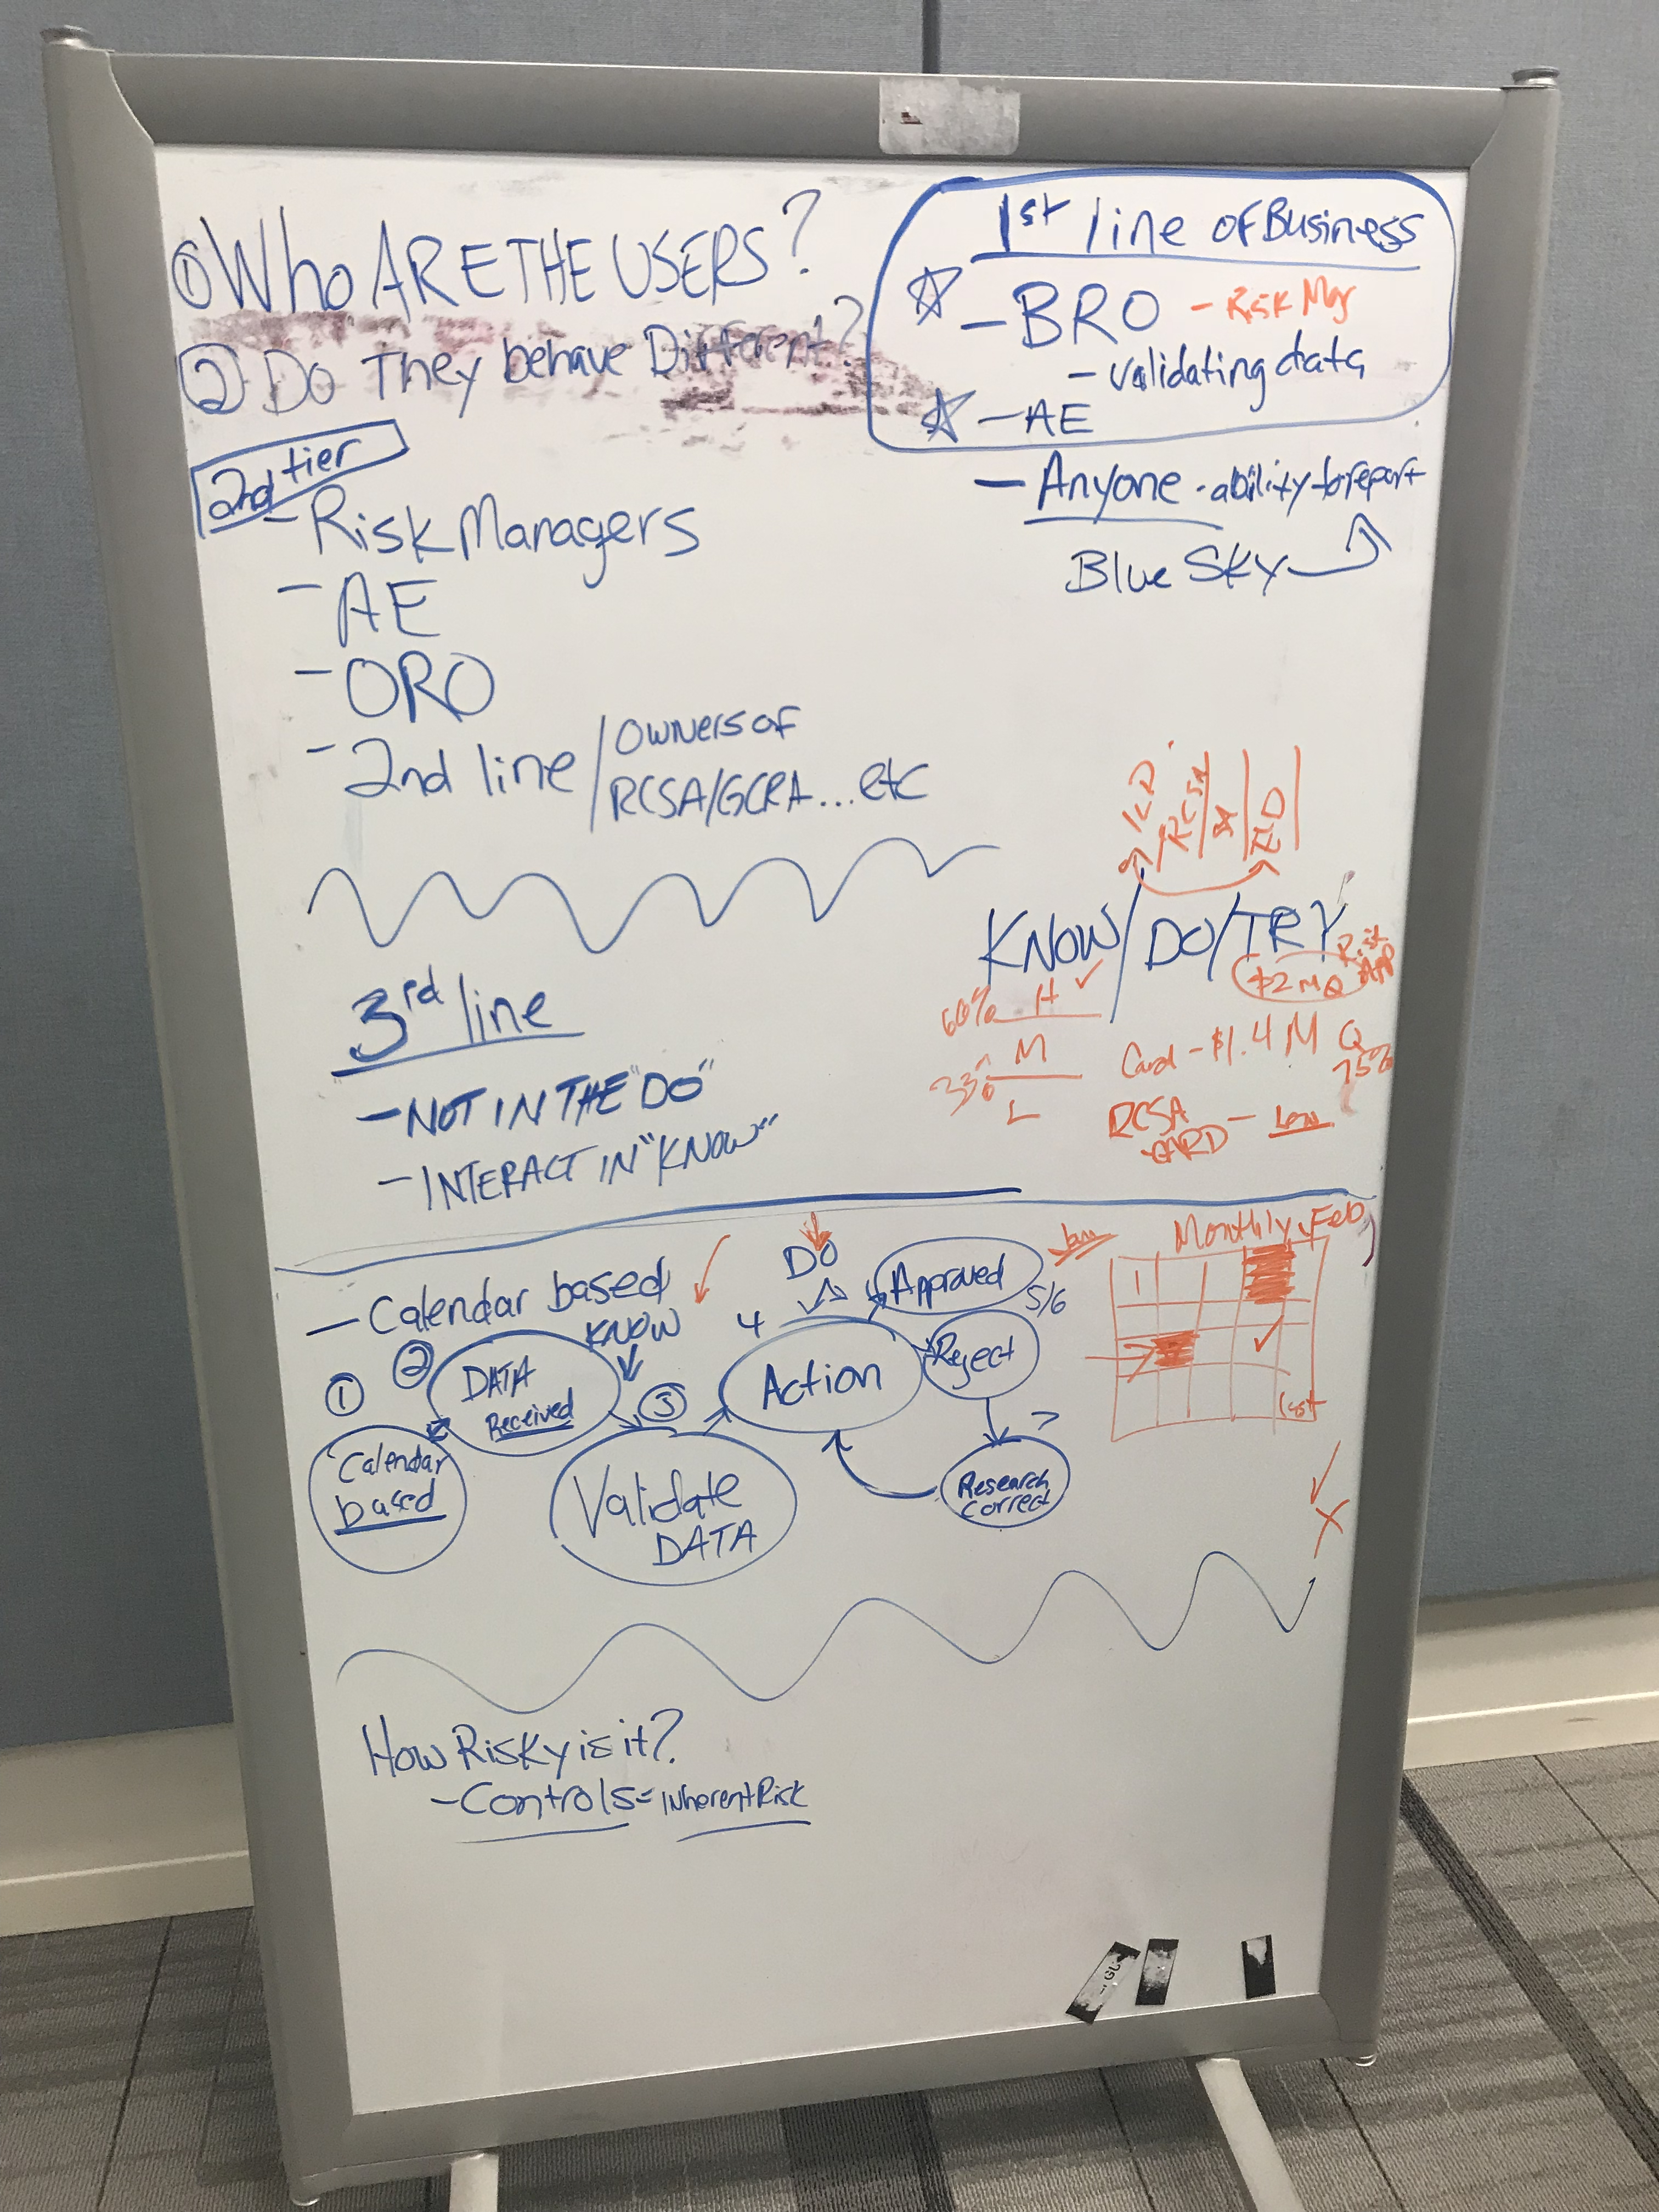 ① Who ARE THE USERS?
② Do They behave Different?
2nd tier
- Risk Managers
- AE
- ORO
- 2nd line / Owners of
RCSA/GCRA...etc
1st line of Business
☆ - BRO - Risk Mgr
- validating data
☆ - AE
- Anyone - ability to report
Blue Sky
RCSA
ELD
KNOW/DO/TRY
$2 M Q
60% H ✓
M
33%
L
Card - $1.4 M Q
75%
RCSA
CARD - Low
3rd line
- NOT IN THE "DO"
- INTERACT IN "KNOW"
- Calendar based
KNOW
DO
4
Approved
5/6
Reject
①
②
DATA
Received
③
Action
Calendar
based
Validate
DATA
7
Research
Correct
Jan
Monthly Feb
1
✓
✓
X
How Risky is it?
- Controls = Inherent Risk